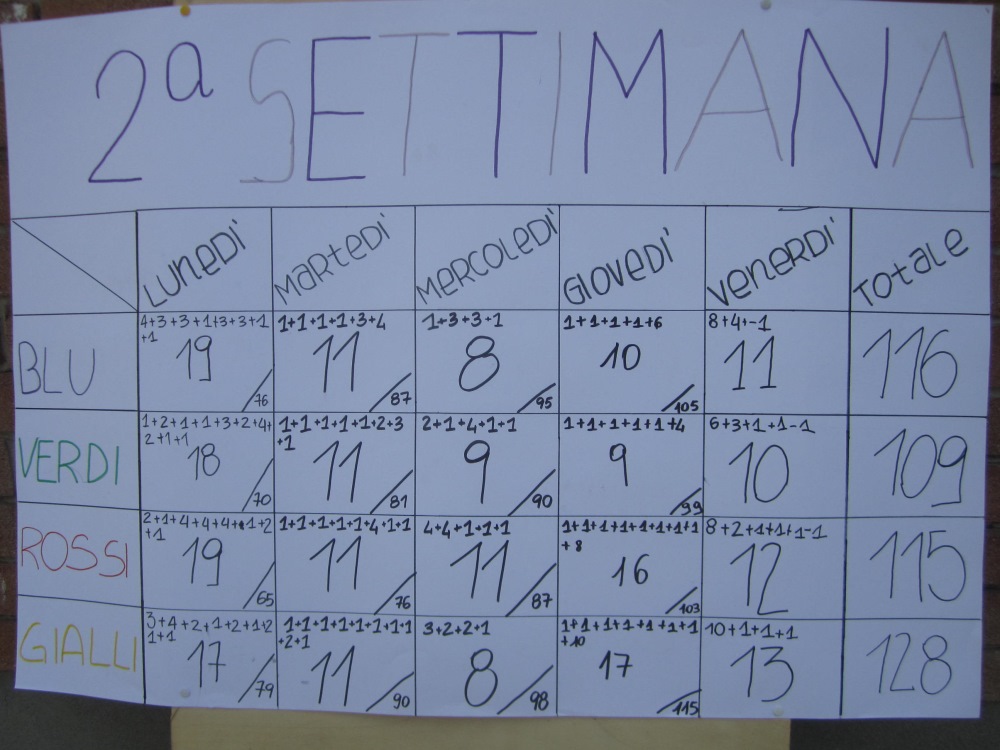 2ª SETTIMANA
LUNEDÌ MARTEDÌ MERCOLEDÌ GIOVEDÌ VENERDÌ TOTALE
BLU
4+3+3+1+3+3+1
+1
19
76
1+1+1+1+3+4
11
87
1+3+3+1
8
95
1+1+1+1+6
10
105
8+4+-1
11
116
VERDI
1+2+1+1+3+2+4+
2+1+1
18
70
1+1+1+1+1+2+3
+1
11
81
2+1+4+1+1
9
90
1+1+1+1+1+4
9
99
6+3+1+1-1
10
109
ROSSI
2+1+4+4+4+1+2
+1
19
65
1+1+1+1+1+4+1+1
11
76
4+4+1+1+1
11
87
1+1+1+1+1+1+1+1
+8
16
103
8+2+1+1+1-1
12
115
GIALLI
3+4+2+1+2+1+2
1+1
17
79
1+1+1+1+1+1+1+1
+2+1
11
90
3+2+2+1
8
98
1+1+1+1+1+1+1
+10
17
115
10+1+1+1
13
128